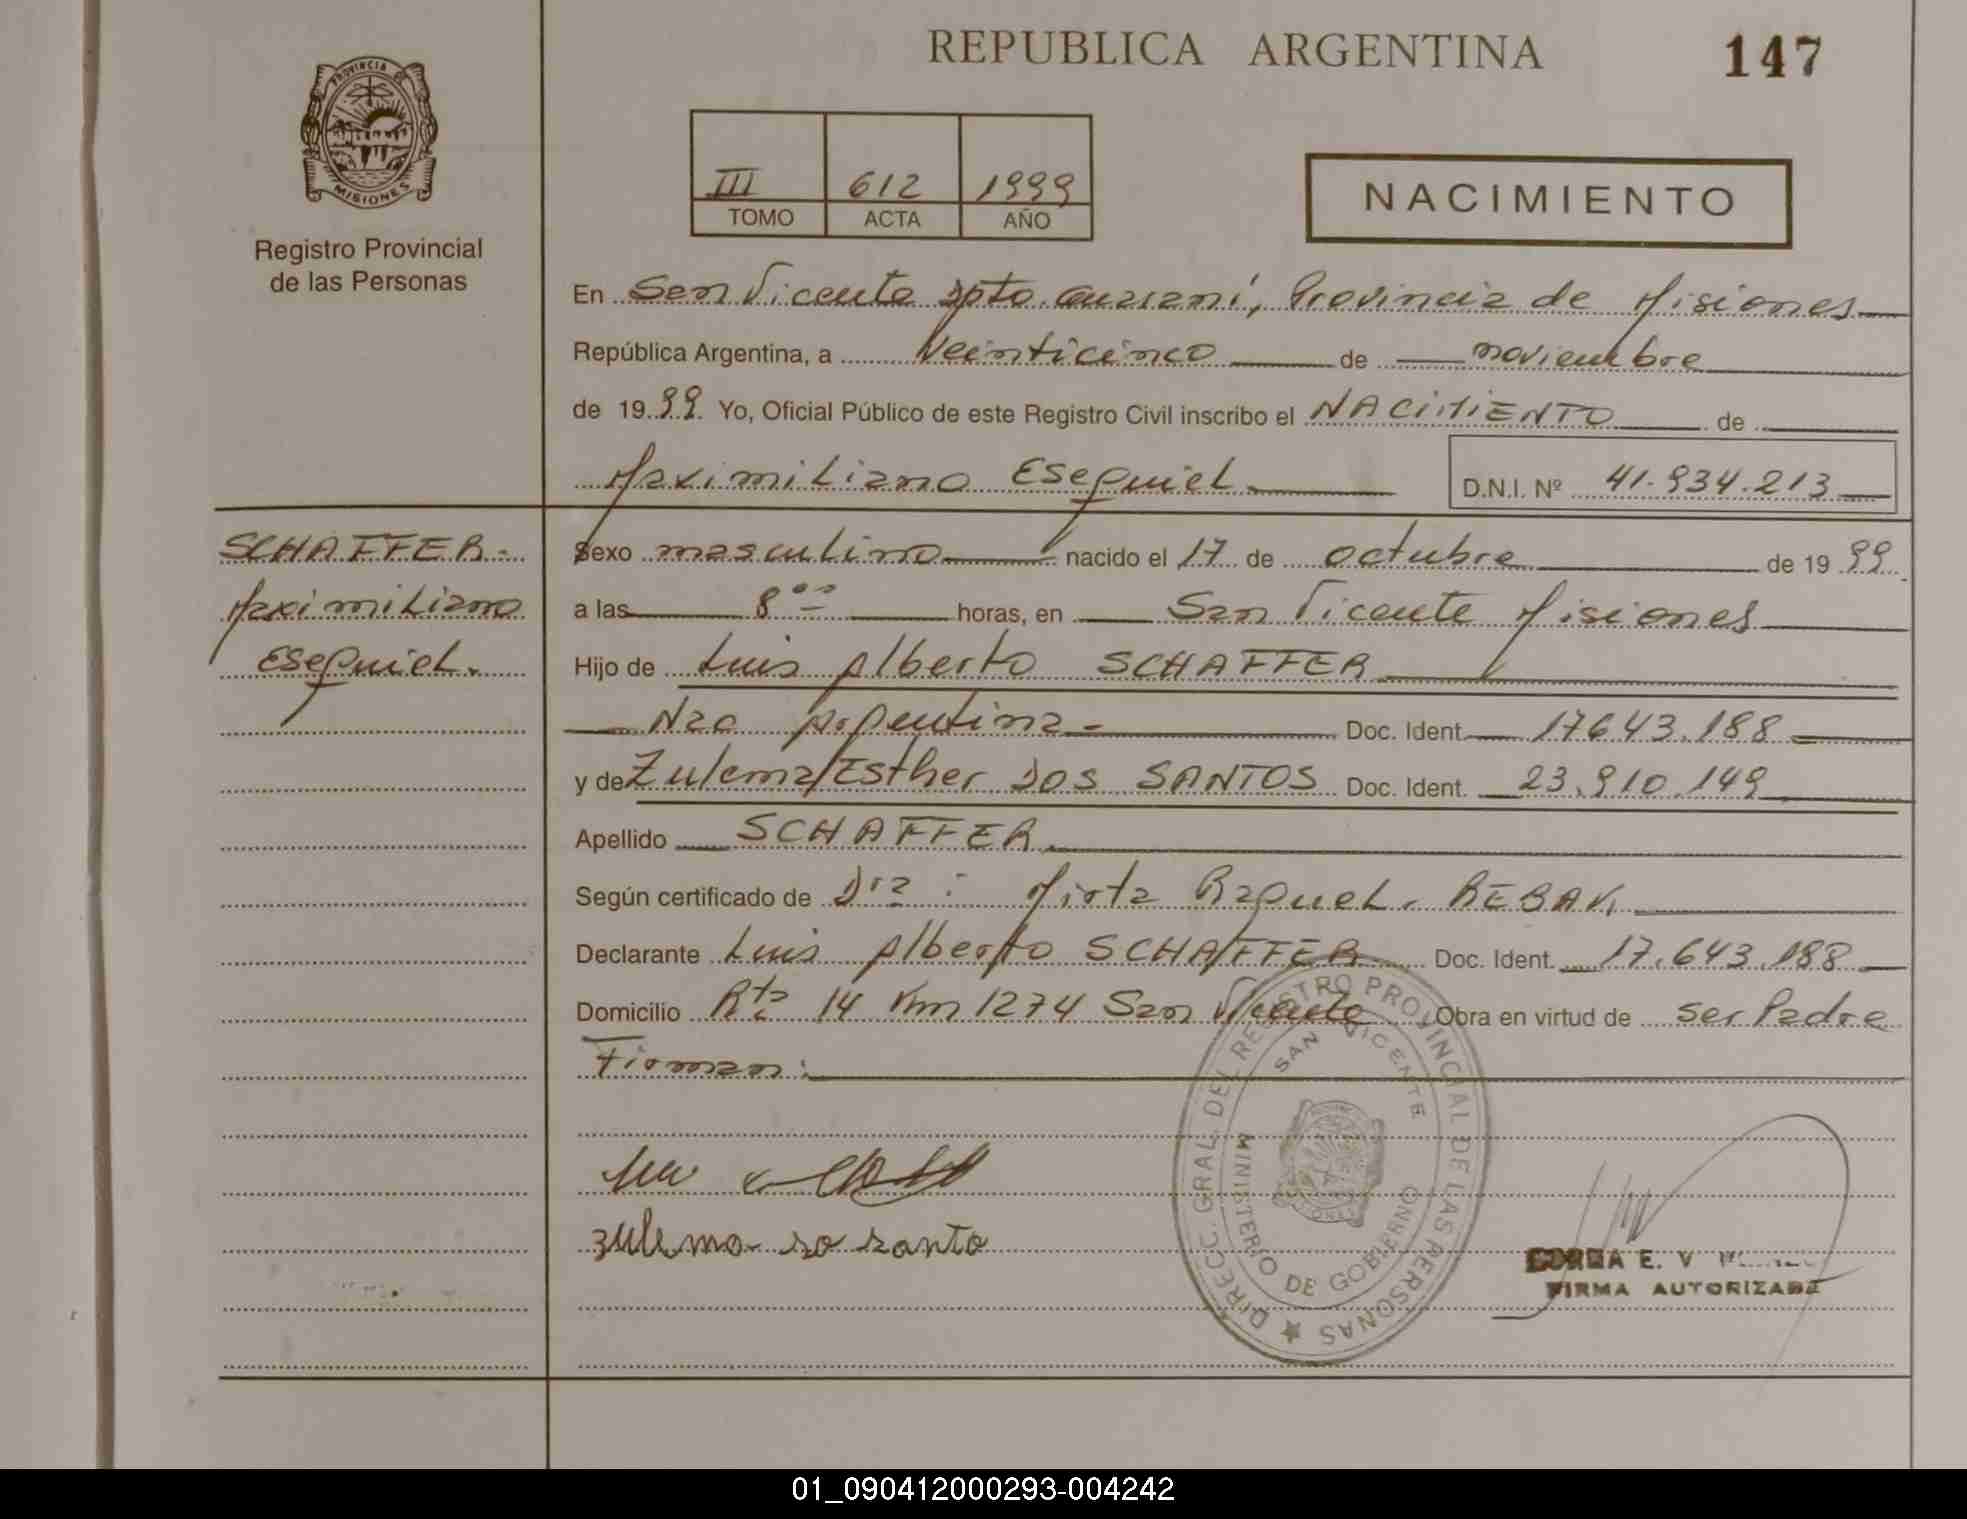 REPUBLICA ARGENTINA
147
PROVINCIA DE
MISIONES
Registro Provincial
de las Personas
III 612 1999
TOMO ACTA AÑO
NACIMIENTO
En San Vicente Dpto. Guaraní, Provincia de Misiones
República Argentina, a veinticinco de noviembre
de 1999 Yo, Oficial Público de este Registro Civil inscribo el NACIMIENTO de
Maximiliano Esequiel D.N.I. Nº 41.934.213
SCHAFFER.-
Maximiliano
Esequiel.
Sexo masculino nacido el 17 de octubre de 1999
a las 8 00 horas, en San Vicente Misiones
Hijo de Luis Alberto SCHAFFER
Nac Argentina- Doc. Ident. 17643.188
y de Zulema Esther DOS SANTOS Doc. Ident. 23.910.149
Apellido SCHAFFER
Según certificado de Dra : Mirta Raquel.
Declarante Luis Alberto SCHAFFER Doc. Ident. 17.643.188
Domicilio Rta 14 Km 1274 San Vicente Obra en virtud de ser Padre
Firman:
zulema do santo
DIRECC. GRAL. DEL REGISTRO PROVINCIAL DE LAS PERSONAS
SAN VICENTE
MINISTERIO DE GOBIERNO
E. V
FIRMA AUTORIZADA
01_090412000293-004242